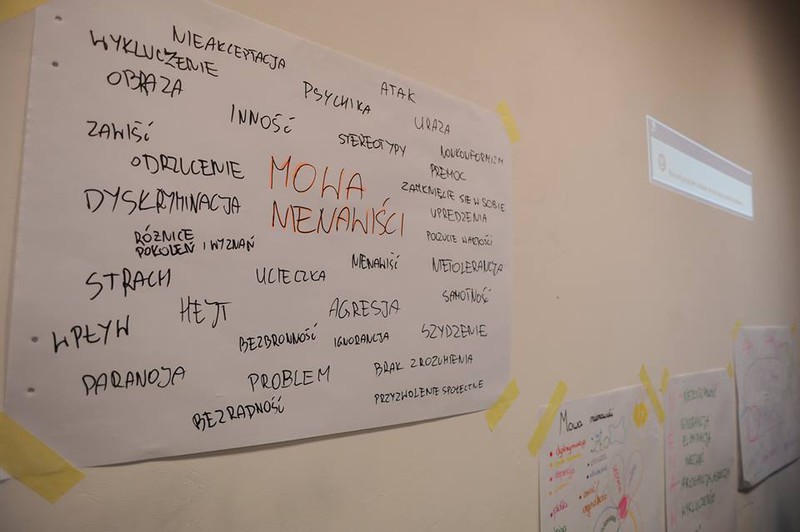 NIEAKCEPTACJA
WYKLUCZENIE
OBRAZA
PSYCHIKA
ATAK
INNOŚĆ
URAZA
ZAWIŚĆ
STEREOTYPY
NONKONFORMIZM
ODRZUCENIE
MOWA
NIENAWIŚCI
PRZEMOC
ZAMKNIĘCIE SIĘ W SOBIE
DYSKRYMINACJA
UPRZEDZENIA
RÓŻNICE
POKOLEŃ I WYZNAŃ
POCZUCIE WARTOŚCI
NIENAWIŚĆ
NIETOLERANCJA
STRACH
UCIECZKA
SAMOTNOŚĆ
HEJT
AGRESJA
WPŁYW
BEZBRONNOŚĆ
IGNORANCJA
SZYDZENIE
PARANOJA
PROBLEM
BRAK ZROZUMIENIA
BEZRADNOŚĆ
PRZYZWOLENIE SPOŁECZNE
Mowa nienawiści